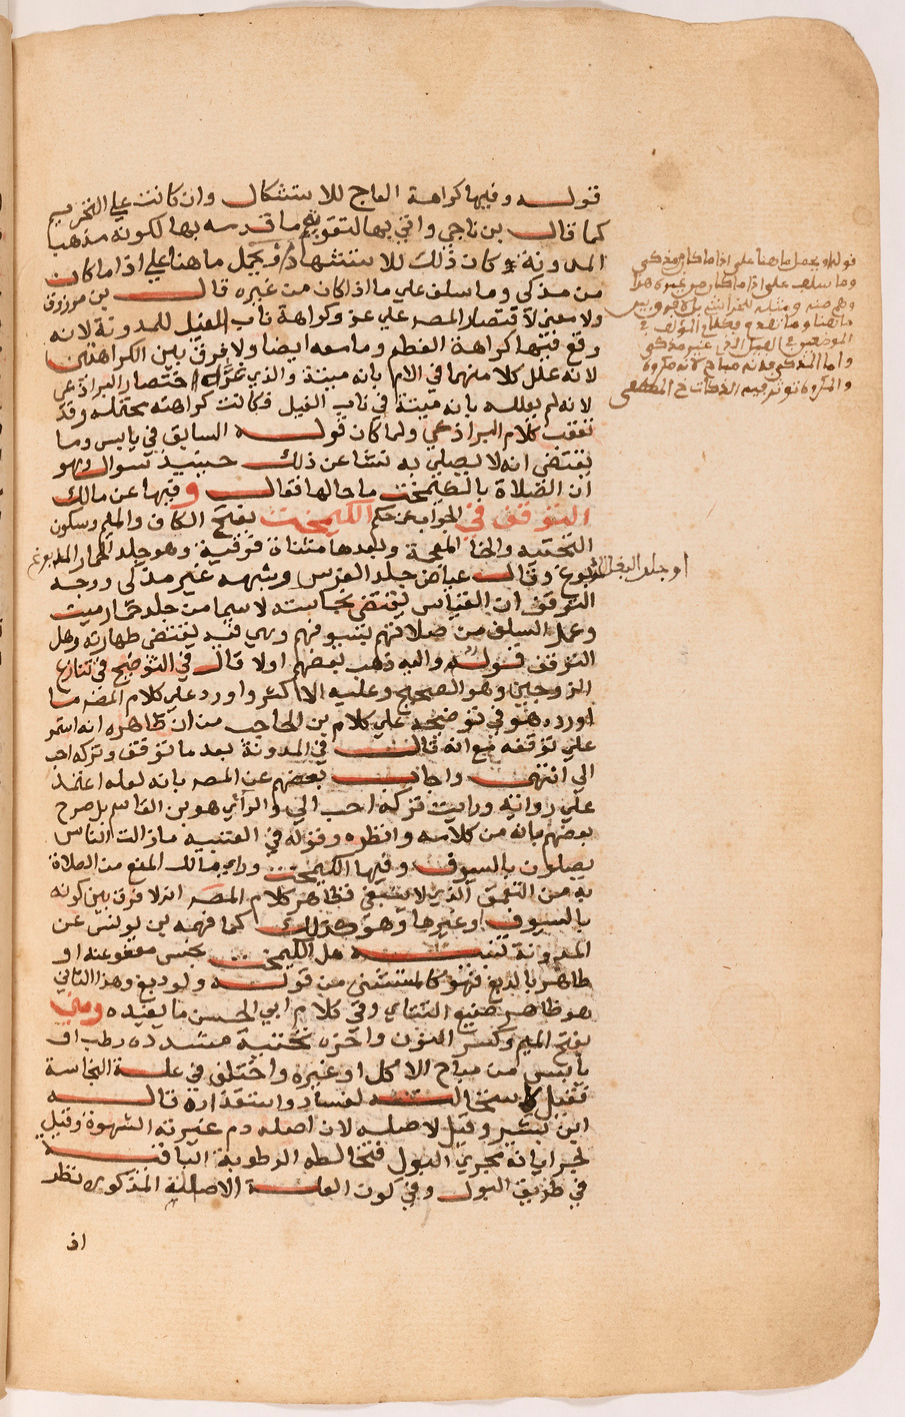 قوله وفيها كراهة العاج للاستشكال وان كانت علي التحريم
كما قال بن ناجي واتي بها لتقوية ما قدمه بها لكونه مذهب
المدونة وكان ذلك للاستشهاد او يحمل ما هنا علي اذا ما كان
من مذكي وما سلف علي ما اذا كان من غيره قال بن مرزوق
ولا معني لاقتصار المص علي عزو كراهة ناب الفيل للمدونة لانه
وقع فيها كراهة العظم وما معه ايضا ولا فرق بين الكراهتين
لانه علل كلا منهما في الام بانه ميتة والذي اختصار البراذعي
لانه لم يعلله بانه ميتة في ناب الفيل فكانت كراهته محتملة وقد
تعقب كلام البراذعي ولما كان قوله السابق في يابس وما
يقتضي انه لا يصلي به نشا عن ذلك حينيذ سوال وهو
ان الصلاة بالكيمخت ما حالها فقال وفيها عن مالك
التوقف في الجواب عن حكم الكيمخت بفتح الكاف والميم وسكون
التحتية والخا المعجمة وبعدها مثناة فوقية وهو جلد الحمار المدبوغ
وقال عياض جلد الفرس وشبهه غير مذكي ووجه
التوقف ان القياس يقتضي نجاسته لا سيما من جلد حمار ميت
وعمل السلف من صلاتهم بسيوفهم وهي فيه يقتضي طهارته وهل
التوقف قول واليه ذهب بعضهم اولا قال في التوضيح في تنازع
الزوجين وهو الصحيح وعليه الاكثر واورد علي كلام المص ما
اورده هو في توضيحه علي كلام بن الحاجب من ان ظاهره انه استمر
علي توقفه مع انه قال في المدونة بعد ما توقف وتركه احب
الي انتهي واجاب بعضهم عن المص بانه لعله اعتمد
علي رواية ورايت تركه احب الي والرائي هو بن القاسم بل صرح
بعضهم بانه من كلامه وانظره وقوله في العتبية ما زالت الناس
يصلون بالسيوف وفيها الكيمخت وراي مالك المنع من الصلاة
به من التعمق الذي لا ينبغي فظاهر كلام المص انه لا فرق بين كونه
بالسيوف او غيرها وهو كذلك كما فهمه ابن يونس عن
المدونة تنبيه هل الكيمخت نجس معفو عنه او
طاهر بالدبغ فهو كالمستثني من قوله ولو دبغ وهذا الثاني
هو ظاهر صنيع التتاي وفي كلام ابي الحسن ما يفيده ومني
بفتح الميم وكسر النون واخره تحتية مشددة رطب او
يابس من مباح الاكل او غيره واختلف في علة النجاسة
فقيل لاستحالته لفساد واستقذاره قاله
ابن بشير وقيل لاصله لان اصله دم غيرته الشهوة وقيل
لجريانه مجري البول فتخالطه الرطوبة الباقية
في طريق البول وفي كون العلة الاصلية المذكوره نظر
اذ
قوله او يحمل ما هنا علي اذا ما كان من مذكي
وما سلف علي اذا ما كان من غيره هذا
واما المذكي فانه مباح لا انه مكروه
او جلد البغل